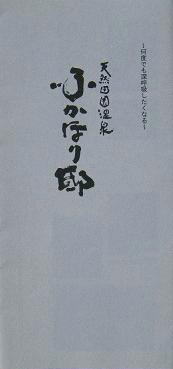 ～何度でも深呼吸したくなる～
天然田園温泉
ふかほり邸